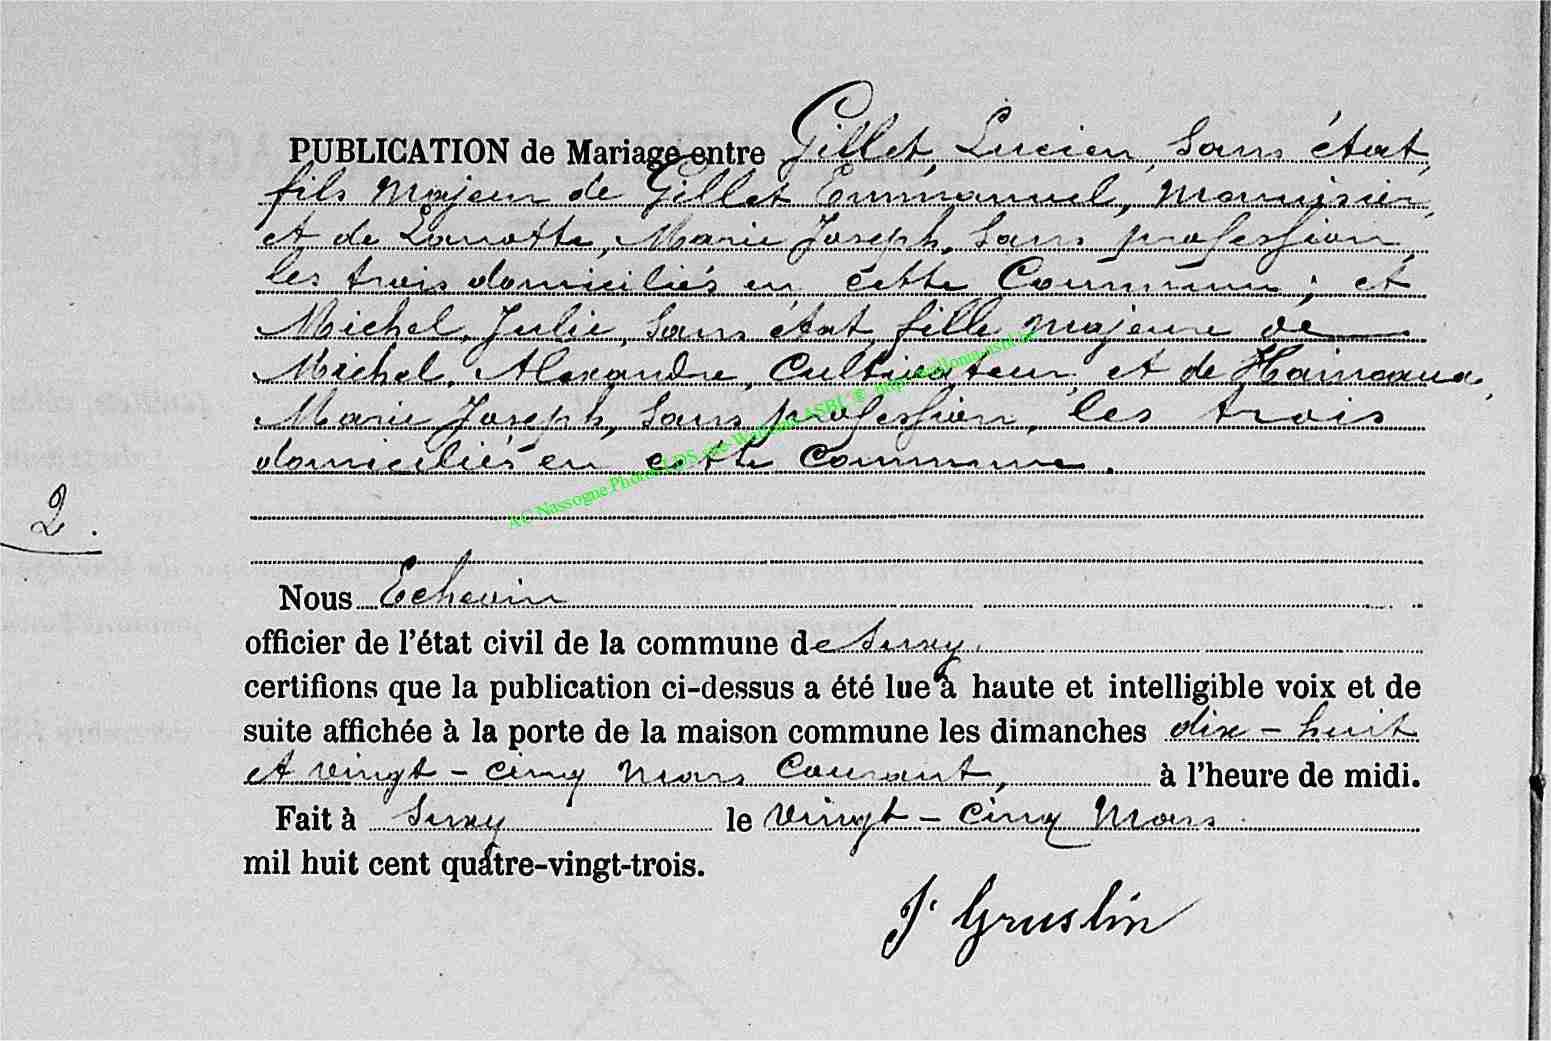 PUBLICATION de Mariage entre Gillet, Lucien, sans état,
fils majeur de Gillet Emmanuel, menuisier,
et de Lanotte, Marie Joseph, sans profession
les trois domiciliés en cette Commune ; et
Michel, Julie, sans état, fille majeure de
Michel, Alexandre, Cultivateur, et de Haineaux,
Marie Joseph, sans profession, les trois
domiciliés en cette Commune.
2.
Nous Echevin
officier de l'état civil de la commune de Surxy
certifions que la publication ci-dessus a été lue à haute et intelligible voix et de
suite affichée à la porte de la maison commune les dimanches dix-huit
et vingt-cinq Mars Courant, à l'heure de midi.
Fait à Surxy le vingt-cinq Mars
mil huit cent quatre-vingt-trois.
J. Gruslin
AC Nassogne Photo LDS